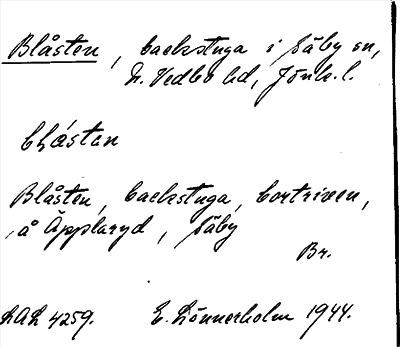 Blåsten, backstuga i Säby sn,
N. Vedbo hd, Jönk. l.
blåstən
Blåsten, backstuga, bortriven,
å Äpplaryd, Säby
Br.
LAL 4259. E. Lönnerholm 1944.